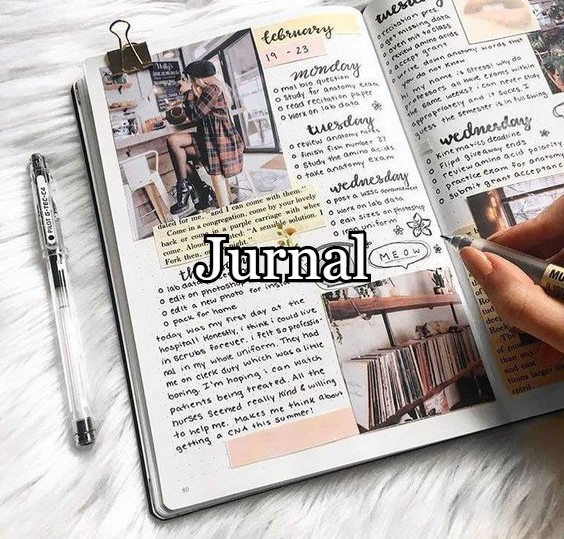 february
19 - 23
monday
o mal bio question
o study for anatomy exam
o read recitation paper
o work on lab data
tuesday
o review anatomy notes
o finish fish number 37
o study the amino acids
o take anatomy exam
wednesday
o work on lab data
o edit sizes on photoshop
uniform
MEOW
dated for me," and I can come with them."
Come in a congregation, come by your lovely
back or come in a purple carriage with other
come. "A sensible solution. I
Fork then,
Jurnal
th
o lab data
o edit on photoshop
o edit a new photo for
o pack for home
today was my first day at the
hospital! Honestly, i think i could live
in scrubs forever. i felt so professio-
nal in my whole uniform. They had
me on clerk duty which was a little
boring, I'm hoping i can watch
patients being treated. All the
nurses seemed really kind & willing
to help me. Makes me think about
getting a CNA this summer!
80
tuesday
recitation pres.
get missing data
even mit to class
review amino acids
accept grant
write down anatomy words that
you do not know
hi, my name is stress! why do
professors all have exams within
the same weeks? i can never study
appropriately and it sucks. i
guess the semester is in full swing
wednesday
o kinematics deadline
giveaway ends
o review amino acid polarity
o practice exam for anatomy
o submit grant acceptan
PILOT G-TEC-C4